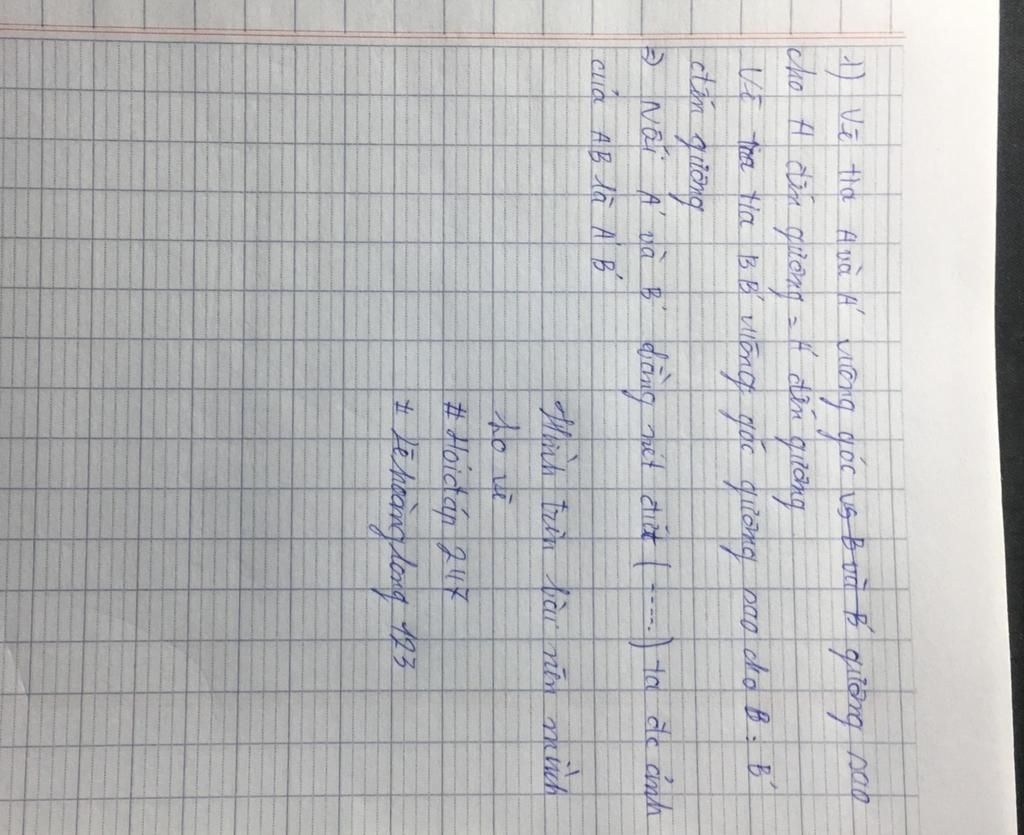 1) Vẽ tia A và A' vuông góc vs B và B' gương sao
cho A đến gương = A' đến gương
Vẽ tia BB' vuông góc gương sao cho B = B'
đến gương
=> Nối A' và B' bằng nét đứt (-----) ta đc ảnh
của AB là A'B'
Hình trên bài nên mình
ko vẽ
# Hoidap 247
# Lêhoànglong 123